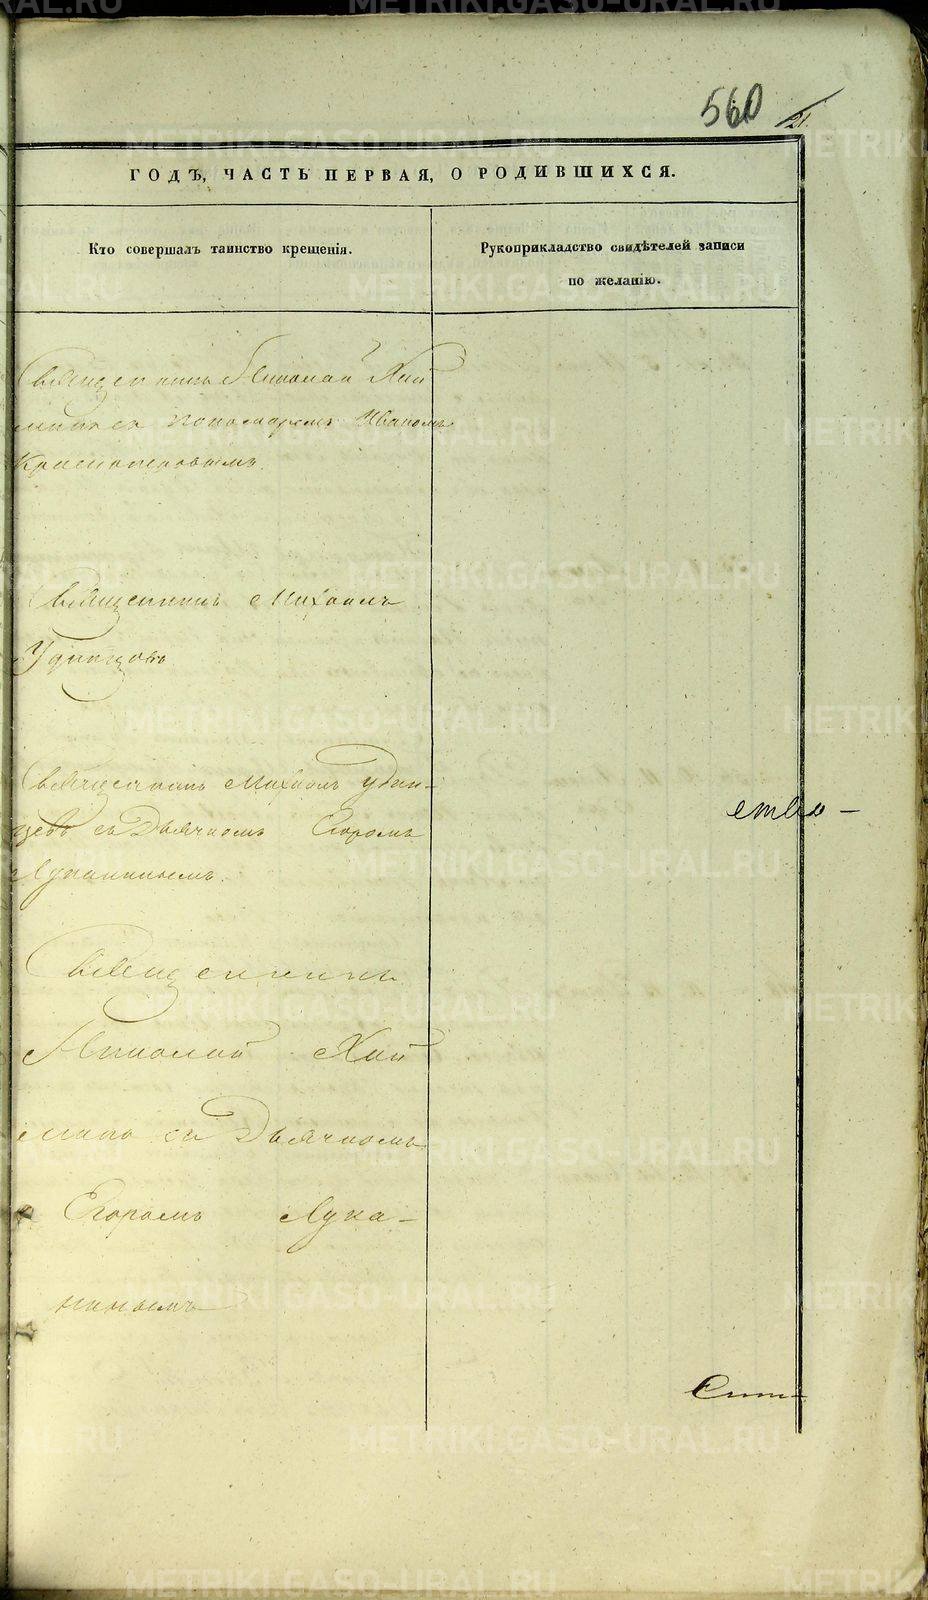 560
21.
ГОДЪ, ЧАСТЬ ПЕРВАЯ, О РОДИВШИХСЯ.
Кто совершалъ таинство крещенія.
Рукоприкладство свидѣтелей записи
по желанію.
Священникъ Николай Хай
съ пономаремъ Иваномъ
Краснопѣровымъ.
Священникъ Михаилъ
Удинцовъ
Священникъ Михаилъ Удин-
цевъ съ Дьячкомъ Егоромъ
Луканинымъ.
ство-
Священникъ
Николай Хай
минъ съ Дьячкомъ
Егоромъ Лука-
нинымъ
METRIKI.GASO-URAL.RU